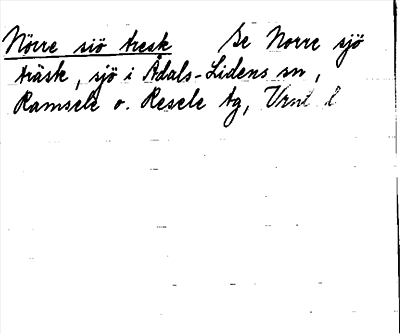 Nörre siö tresk Se Norre sjö
träsk, sjö i Ådals-Lidens sn,
Ramsele o. Resele tg, Vrnl l